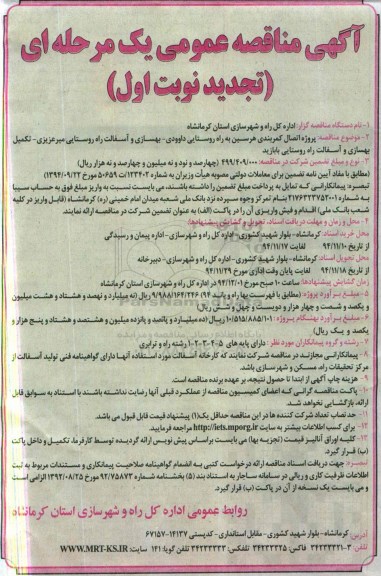 آگهی مناقصه عمومی یک مرحله ای
(تجدید نوبت اول)
۱- نام دستگاه مناقصه گزار: اداره کل راه و شهرسازی استان کرمانشاه
۲- موضوع مناقصه: پروژه اتصال کمربندی هرسین به راه روستایی داوودی- بهسازی و آسفالت راه روستایی میرعزیزی- تکمیل
بهسازی و آسفالت راه روستایی بابازید
۳- نوع و مبلغ تضمین شرکت در مناقصه: ۴۹۹/۴۰۹/۰۰۰ (چهارصد و نود و نه میلیون و چهارصد و نه هزار ریال)
(مطابق با مفاد آیین نامه تضمین برای معاملات دولتی مصوبه هیأت وزیران به شماره ۱۲۳۴۰۲/ت۵۰۶۵۹ مورخ ۱۳۹۴/۰۹/۲۲)
تبصره: پیمانکارانی که تمایل به پرداخت مبلغ تضمین را داشته باشند، می بایست نسبت به واریز مبلغ فوق به حساب سیبا
به شماره ۲۱۷۶۳۳۷۵۲۰۰۱ بنام تمرکز وجوه سپرده نزد بانک ملی شعبه میدان امام خمینی (ره) کرمانشاه (قابل واریز در کلیه
شعب بانک ملی) اقدام و فیش واریزی آن را در پاکت (الف) به عنوان تضمین شرکت در مناقصه ارائه نمایند.
۴- محل و زمان و مهلت دریافت اسناد، تحویل و گشایش پیشنهادها:
محل خرید اسناد: کرمانشاه- بلوار شهید کشوری- اداره کل راه و شهرسازی- اداره پیمان و رسیدگی
از تاریخ ۹۴/۱۱/۱۰ لغایت ۹۴/۱۱/۱۷
محل تحویل اسناد: کرمانشاه- بلوار شهید کشوری- اداره کل راه و شهرسازی- دبیرخانه
از تاریخ ۹۴/۱۱/۱۸ لغایت پایان وقت اداری مورخ ۹۴/۱۱/۲۹
گشایش پیشنهادها: ساعت ۱۰ صبح مورخ ۹۴/۱۲/۰۱ در اداره کل راه و شهرسازی استان کرمانشاه
۵- مبلغ برآورد پروژه: (مطابق با فهرست بها راه و باند ۹۴) ۹/۹۸۸/۱۶۴/۲۴۶ ریال (نه میلیارد و نهصد و هشتاد و هشت میلیون
و یکصد و شصت و چهار هزار و دویست و چهل و شش ریال)
۶- مبلغ برآورد بهنگام پروژه: ۱۰/۵۱۵/۸۸۵/۱۰۱ ریال (ده میلیارد و پانصد و پانزده میلیون و هشتصد و هشتاد و پنج هزار و
یکصد و یک ریال)
۷- رشته و گروه پیمانکاران مورد نظر: دارای پایه های ۵-۴-۳-۲-۱ رشته راه و ترابری
۸- پیمانکارانی مجازند در مناقصه شرکت نمایند که کارخانه آسفالت مورد استفاده آنها دارای گواهینامه فنی تولید آسفالت از
مرکز تحقیقات راه، مسکن و شهرسازی باشد.
۹- هزینه چاپ آگهی از ابتدا تا حصول نتیجه، بر عهده برنده مناقصه است.
۱۰- پاکت مناقصه گرانی که اعضای کمیسیون مناقصه از عملکرد قبلی آنها رضایت نداشته باشند با استناد به سوابق قابل
ارائه، بازگشایی نخواهد شد.
۱۱- حد نصاب تعداد شرکت کننده ها در این مناقصه حداقل یک(۱) پیشنهاد قیمت قابل قبول می باشد.
۱۲- برای کسب اطلاعات بیشتر به سایت http://iets.mporg.ir مراجعه فرمایید.
۱۳- کلیه اوراق آنالیز قیمت (تجزیه بها) می بایست براساس پیش نویس ارائه گردیده توسط کارفرما، تکمیل و داخل پاکت
(ب) قرار گیرد.
تبصره: جهت دریافت اسناد مناقصه ارائه درخواست کتبی به انضمام گواهینامه صلاحیت پیمانکاری و مستندات مربوط به ثبت
اطلاعات ظرفیت کاری و ریالی در سامانه ساجار به استناد بند (۵) بخشنامه شماره ۹۲/۷۵۸۷۳ مورخ ۱۳۹۲/۰۸/۲۵ الزامی است
و می بایست یک نسخه از آن در پاکت (ب) قرار گیرد.
روابط عمومی اداره کل راه و شهرسازی استان کرمانشاه
آدرس: کرمانشاه- بلوار شهید کشوری- مقابل استانداری- کدپستی ۶۷۱۵۷-۱۴۱۳۷
۳-۳۴۲۳۳۳۲۱ فاکس: ۳۴۲۳۳۳۲۵ تلفکس: ۳۴۲۳۳۳۳۳ تلفن گویا: ۱۴۱ سایت: WWW.MRT-KS.IR